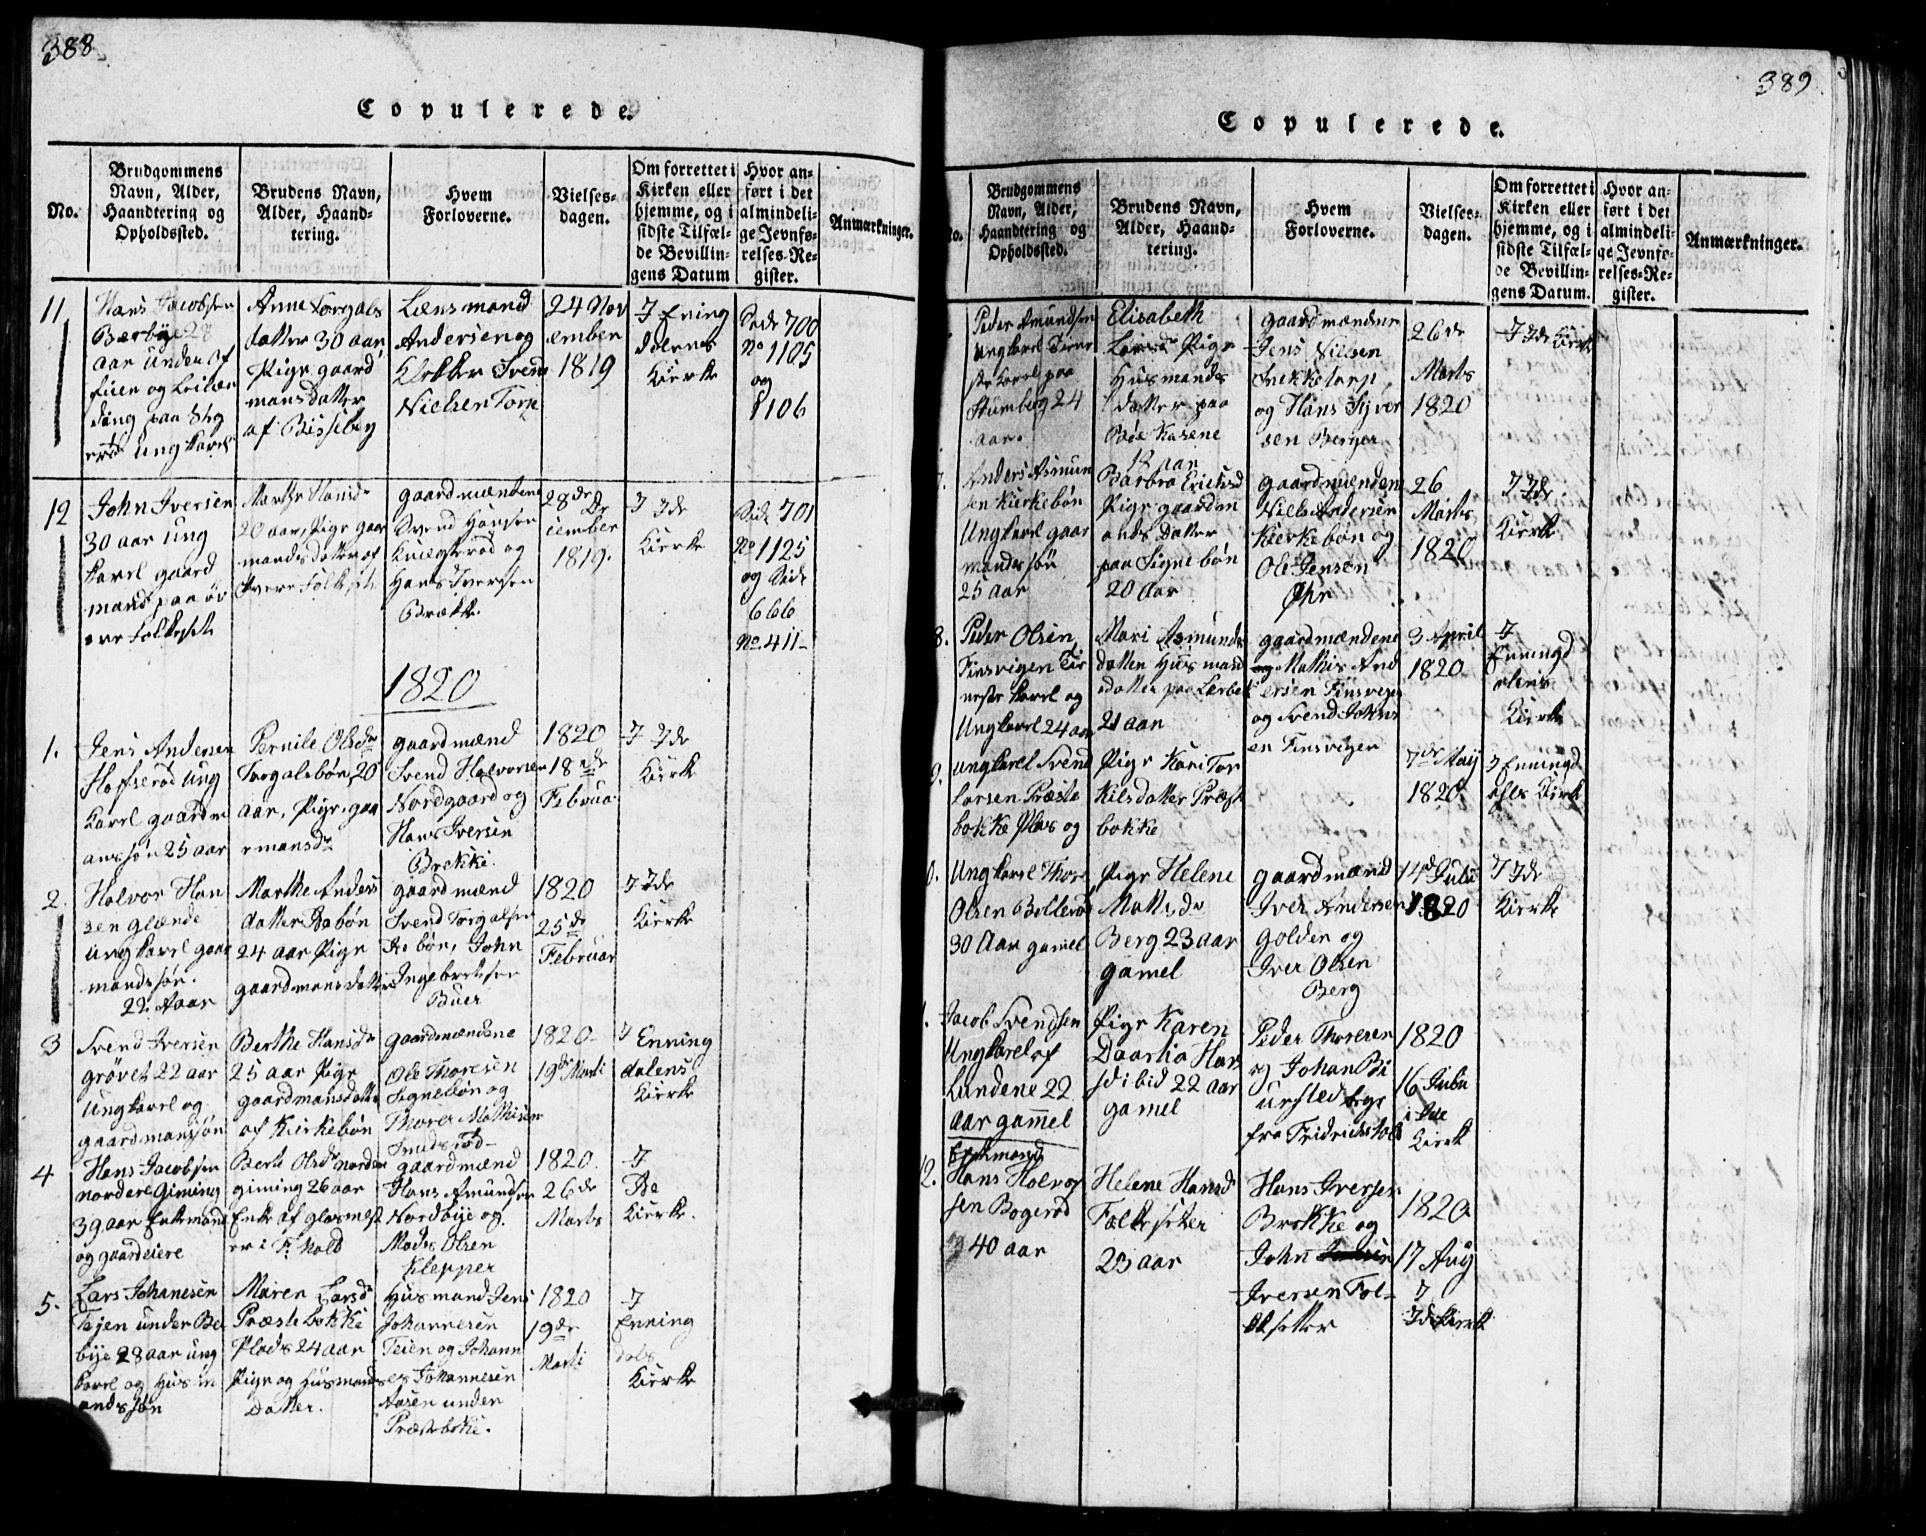 388
Copulerede.
No.
Brudgommens
Navn, Alder,
Haandtering og
Opholdssted.
Brudens Navn,
Alder, Haand-
tering.
Hvem
Forloverne.
Vielses-
dagen.
Om forrettet i
Kirken eller
hjemme, og i
sidste Tilfæl-
de Bevillin-
gens Datum
Hvor an-
ført i det
almindeli-
ge Jevnfø-
relses-Re-
gister.
Anmærkninger.
11
Hans Jacobsen
Berbye 28
aar under of
ficer og
ding paa
ungkarl
Anne Torgals
datter 30 aar
Pige gaard
mansdatter
af Bisseberg
Lænsmand
Andersen og
Klokker Svend
Nielsen Torp
24 Nov
ember
1819
I Ening
dalens
Kierke
Side 700
No 1105
og
1106
12
John Iversen
30 aar ung
karl gaard
mand paa öv
ere Folkeset
Marthe Hansdr
20 aar, Pige gaar
mandsdatter af
övere Folkeset
gaardmændene
Svend Hansen
Knægterød og
Hans Iversen
Brække.
28de De
cember
1819.
I Ide
Kierke
Side 701
No 1125
og Side
666
No 411-
1820
1.
Jens Andersen
Hofserød ung
karl gaardm
anssøn 25 aar
Pernile Olsdr
Torgalsbøn 20
aar, Pige, gaa
rmansdr
gaardmænd
Svend Halvorsen
Nordgaard og
Hans Iversen
Brekke.
1820
18de
Februar
I Ide
Kierke
2.
Halvor Han
sen Glænde
ungkarl gaar
mandssøn.
22 Aaar
Marthe Anders
datter Asbøn
24 aar Pige
gaardmansdatter
gaardmænd
Svend Torgalsen
Asbøn, John
Ingebretsen
Buer
1820
25de
Februar
I Ide
Kierke
3
Svend Iversen
grøvet 22 aar
Ungkarl og
gaardmanssøn
Berthe Hansdr
25 aar Pige
gaardmansdatter
af Kirkebøn
gaardmændene
Ole Thoresen
Signebøn og
Thorer Mathisen
1820-
19de Marti
I Enning
dalens
Kierke
4
Hans Jacobsen
nordere Giming
39 aar Enkemand
og gaardeiere
Berte Olsdr norden
giming 26 aar
Enke af glasmest
er i F:hald
gaardmænd
Hans Amundsen
Nordbye og
Mads Olsen
Klepper
1820.
26de
Marts
I
Ide
Kierke.
5.
Lars Johanesen
Tejen under Be
bye 28 aar ung
karl og Husm
andssøn
Maren Larsdr
Præstebakke
Plads 24 aar
Pige og Husmands
Datter.
Husmand Jens
Johannesen
Teien og Johann
es Johannesen
Aasen under
Præstebakke.
1820
19de
Marti
I
Enning
dals
Kierke
389
Copulerede.
No.
Brudgommens
Navn, Alder,
Haandtering og
Opholdssted.
Brudens Navn,
Alder, Haand-
tering.
Hvem
Forloverne.
Vielses-
dagen.
Om forrettet i
Kirken eller
hjemme, og i
sidste Tilfæl-
de Bevillin-
gens Datum.
Hvor an-
ført i det
almindeli-
ge Jevnfø-
relses-Re-
gister.
Anmærkninger.
Peder Amundsen
Ungkarl Tiene
ste karl paa
Stumberg 24
aar.
Elisabeth
Larsdr Pige
Husmands
datter paa
Bøe Kasene
18 aar
gaardmændene
Jens Nielsen
Snekketorp,
og Hans Syver
sen Berger
26de
Marts
1820
I Ide Kierke
7.
Anders Asmun
sen Kierkebøn
Ungkarl gaar
mandssøn
25 aar
Barbro Erichsd
Pige gaardm
ands Datter
paa Signebøn
20 Aar
gaardmændene
Niels Andersen
Kierkebøn og
Ole Jensen
Øhr
26
Marts
1820
I Ide
Kierke
8.
Peder Olsen
Finsvigen Tie
neste karl og
Ungkarl 24 aar
Mari Asmunds
datter Husmand
sdatter paa Lærbek
21 aar
gaardmændene
Mathis And
ersen Finsvigen
og Svend Johns
en Finsvigen
3 April
1820
I
Enningd
alens
Kierke
9.
Ungkarl Svend
Larsen Præste
bakke Plas og
Pige Kari Tor
kilsdatter Præst
bakke
7de Maij
1820
I Enningd
als Kirke
0.
Ungkarl Thore
Olsen Bollerød
30 Aar gamel
Pige Helene
Matts dr
Berg 23 aar
gamel
gaardmænd
Iver Andersen
Golden og
Iver Olsen
Berg
14de Julii
1820
I Ide
Kierke
1.
Jacob Svendsen
Ungkarl af
Lundene 22
aar gammel
Pige Karen
Daartia Hans
d ibid 22 aar
gamel
Peder Thoresen
og Johan
fra Fridrichshald
1820
16 Julii
i Ide
Kirke
12.
Enkemand
Hans Halvor
sen Bogerød
40 aar
Helene Hansd
Falkesetter
23 aar
Hans Iversen
Brekke og
John
Iversen Fol-
kesetter
1820
17 Aug
I
Ide Kierke